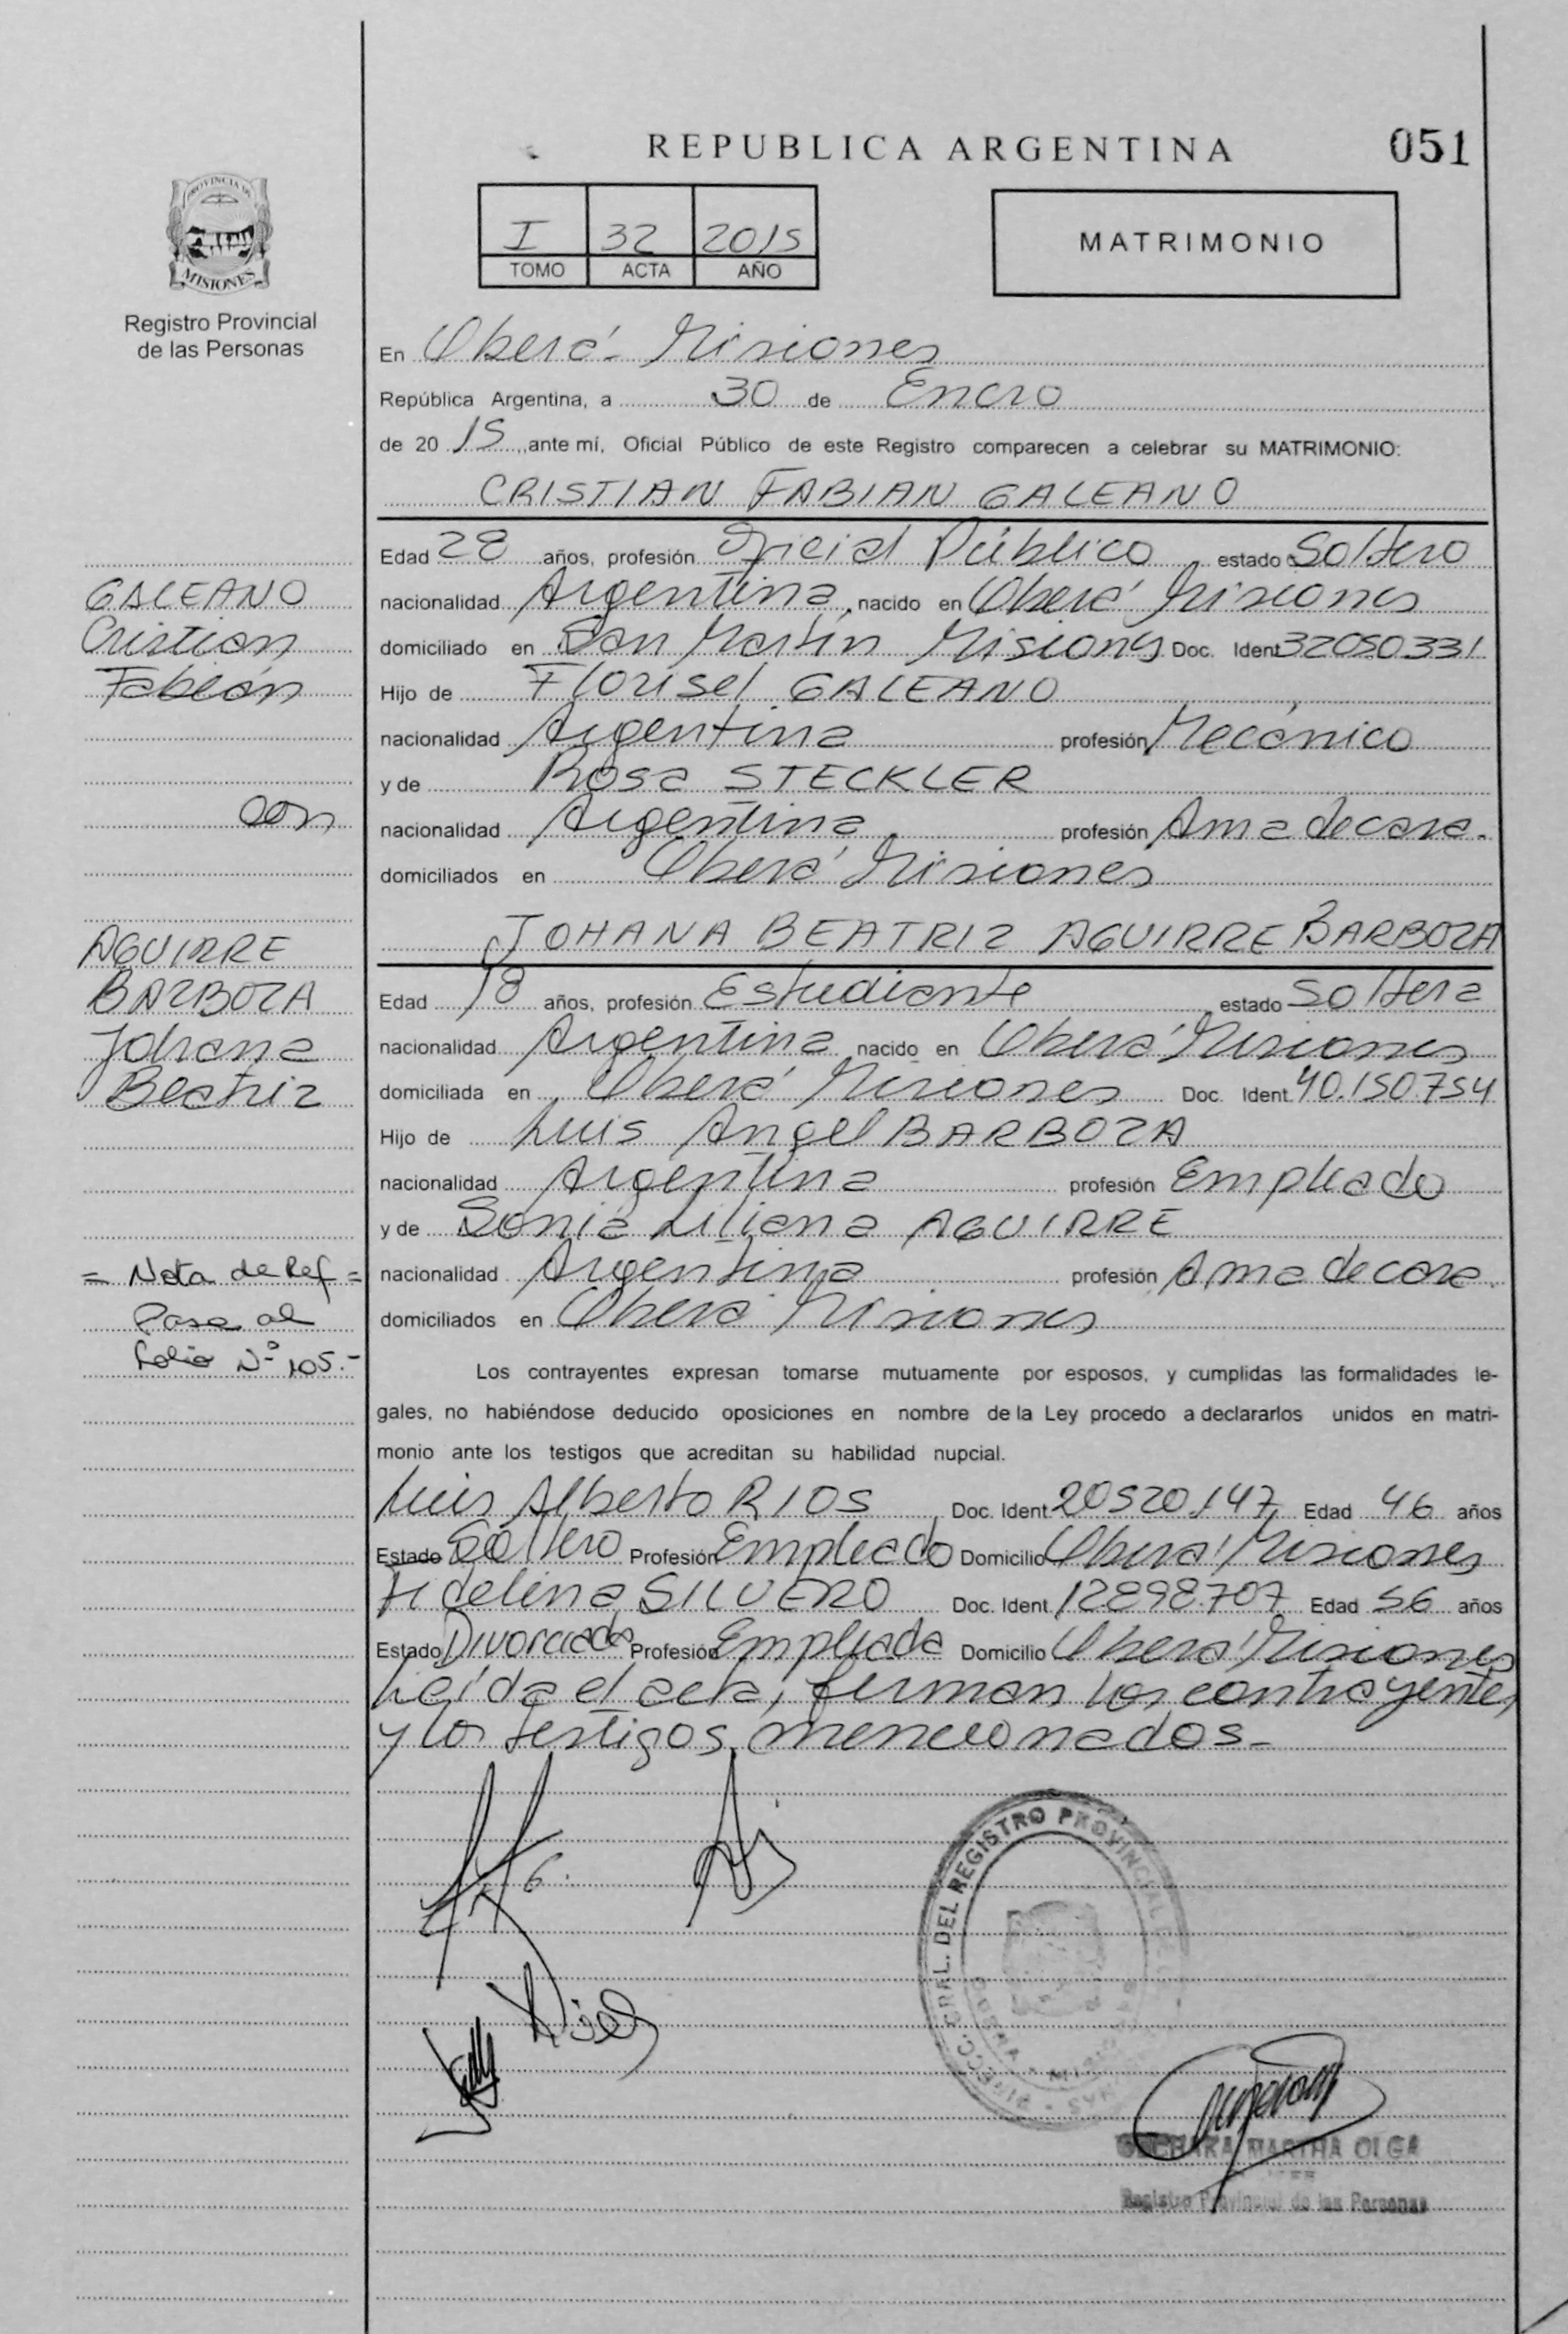 REPUBLICA ARGENTINA
051
PROVINCIA DE
MISIONES
Registro Provincial
de las Personas
I 32 2015
TOMO ACTA AÑO
MATRIMONIO
En Oberá - Misiones
República Argentina, a 30 de Enero
de 20 15, ante mí, Oficial Público de este Registro comparecen a celebrar su MATRIMONIO:
CRISTIAN FABIAN GALEANO
Edad 28 años, profesión Oficial Público estado Soltero
nacionalidad Argentina, nacido en Oberá Misiones
domiciliado en San Martín Misiones Doc. Ident 32050331
Hijo de Florisel GALEANO
nacionalidad Argentina profesión Mecánico
y de Rosa STECKLER
nacionalidad Argentina profesión Ama de casa.
domiciliados en Oberá Misiones
GALEANO
Cristian
Fabián
con
AGUIRRE
BARBOZA
Johana
Beatriz
JOHANA BEATRIZ AGUIRRE BARBOZA
Edad 18 años, profesión Estudiante estado Soltera
nacionalidad Argentina nacido en Oberá Misiones
domiciliada en Oberá Misiones Doc. Ident. 40.150.754
Hijo de Luis Angel BARBOZA
nacionalidad Argentina profesión Empleado
y de Sonia Liliana AGUIRRE
nacionalidad Argentina profesión Ama de casa.
domiciliados en Oberá Misiones
= Nota de Ref =
Pasa al
folio Nº 105.-
Los contrayentes expresan tomarse mutuamente por esposos, y cumplidas las formalidades le-
gales, no habiéndose deducido oposiciones en nombre de la Ley procedo a declararlos unidos en matri-
monio ante los testigos que acreditan su habilidad nupcial.
Luis Alberto RIOS Doc. Ident 20520.147 Edad 46 años
Estado Soltero Profesión Empleado Domicilio Oberá Misiones
Fidelina SILVERO Doc. Ident 12898707 Edad 56 años
Estado Divorciada Profesión Empleada Domicilio Oberá Misiones
Leída el acta, firman los contrayentes
y los testigos mencionados-
DIRECC. GRAL. DEL REGISTRO PROVINCIAL DE
MARTHA OLGA
Registro Provincial de las Personas